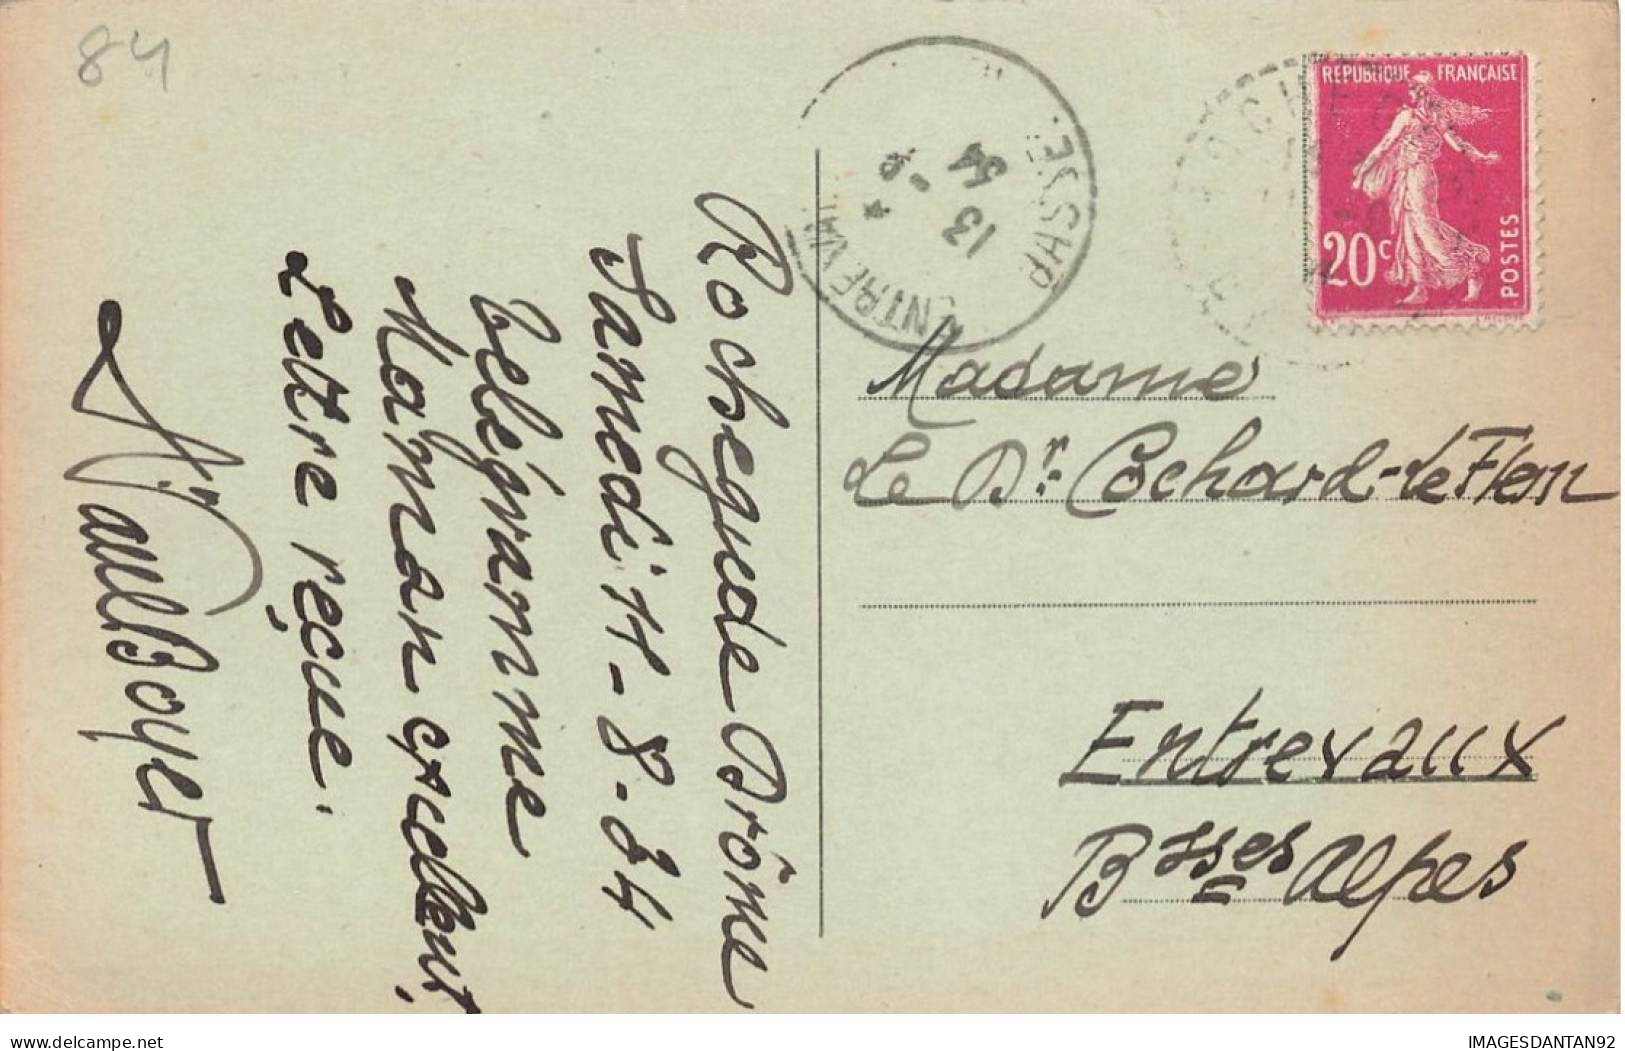 84
Rochegude Drôme
Samedi 11-8-34
Maman excellent,
Lettre reçue.
Paul Boyer
ENTREVAUX
13 -8
34
RÉPUBLIQUE FRANÇAISE
20c
POSTES
Madame
Le Dr. Cochard-Le Flem
Entrevaux
Bsses Alpes
www.delcampe.net
IMAGESDANTAN92